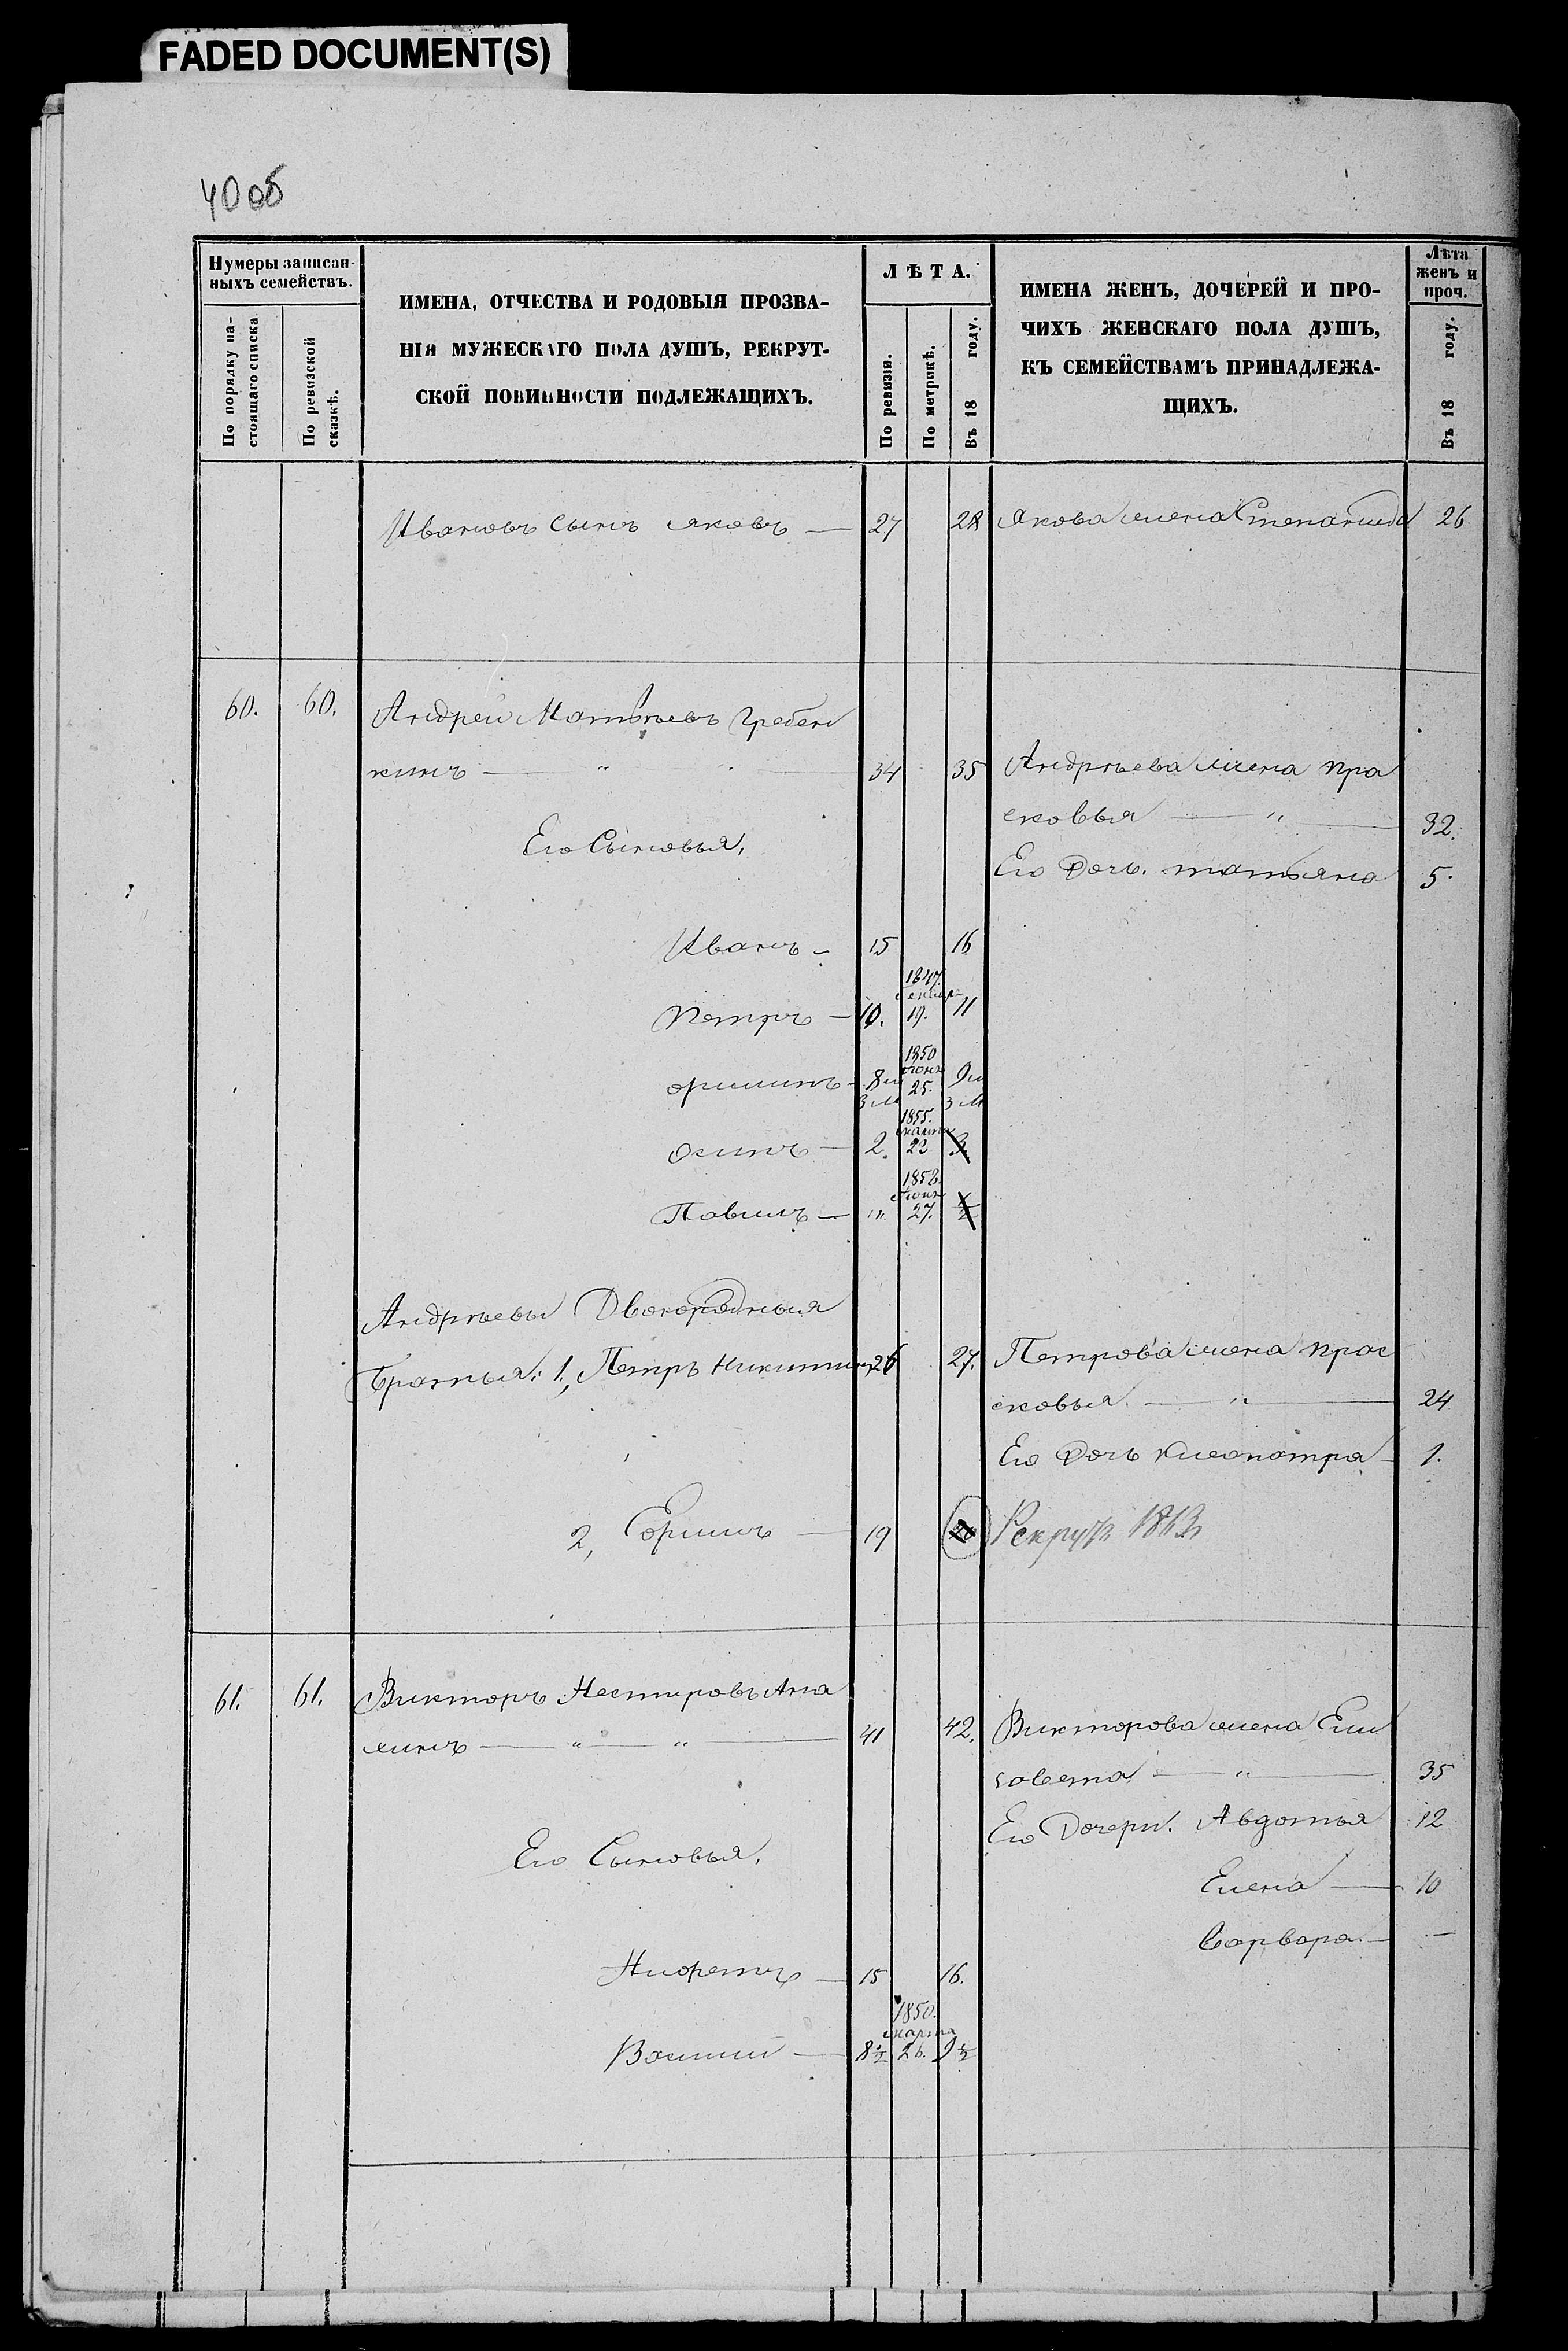 FADED DOCUMENT(S)
40об
Нумеры записан-
ныхъ семействъ.
По порядку на-
стоящаго списка
По ревизской
сказкѣ.
ИМЕНА, ОТЧЕСТВА И РОДОВЫЯ ПРОЗВА-
НІЯ МУЖЕСКАГО ПОЛА ДУШЪ, РЕКРУТ-
СКОЙ ПОВИННОСТИ ПОДЛЕЖАЩИХЪ.
ЛѢТА.
По ревизіи.
По метрикѣ.
Въ 18 году.
ИМЕНА ЖЕНЪ, ДОЧЕРЕЙ И ПРО-
ЧИХЪ ЖЕНСКАГО ПОЛА ДУШЪ,
КЪ СЕМЕЙСТВАМЪ ПРИНАДЛЕЖА-
ЩИХЪ.
Лѣта
женъ и
проч.
Въ 18 году.
Ивановъ Сынъ Яковъ — 27 28 Якова жена Степанида 26
60. 60. Андрей Матвѣевъ Гребен
кинъ — " " — 34 35 Андрѣева жена Пра
сковья — " — 32.
Его Сыновья,
Его Дочь. татьяна 5.
Иванъ — 15 16
Петръ — 10. 1847 19. 11
1850 25.
8 3 м 9 3 м
Осипъ — 2. 1855. марта 23 3
Павилъ — " 1858. 27. ½
Андрѣевы Двоюродныя
Братья: 1, Петръ Никитинъ 26 27. Петрова жена прас
ковья. — " — 24
Его Дочь Клеопатра — 1.
2, — 19 20 Рекрутъ 1863
61. 61. Викторъ Нестировъ Ана
хинъ — " — " — 41 42. Викторова жена Ели
савета — " — 35
Его Дочери. Авдотья 12
Его Сыновья,
Елена — 10
Варвара — —
— 15 16.
Василий — 8½ 1850. марта 26. 9½